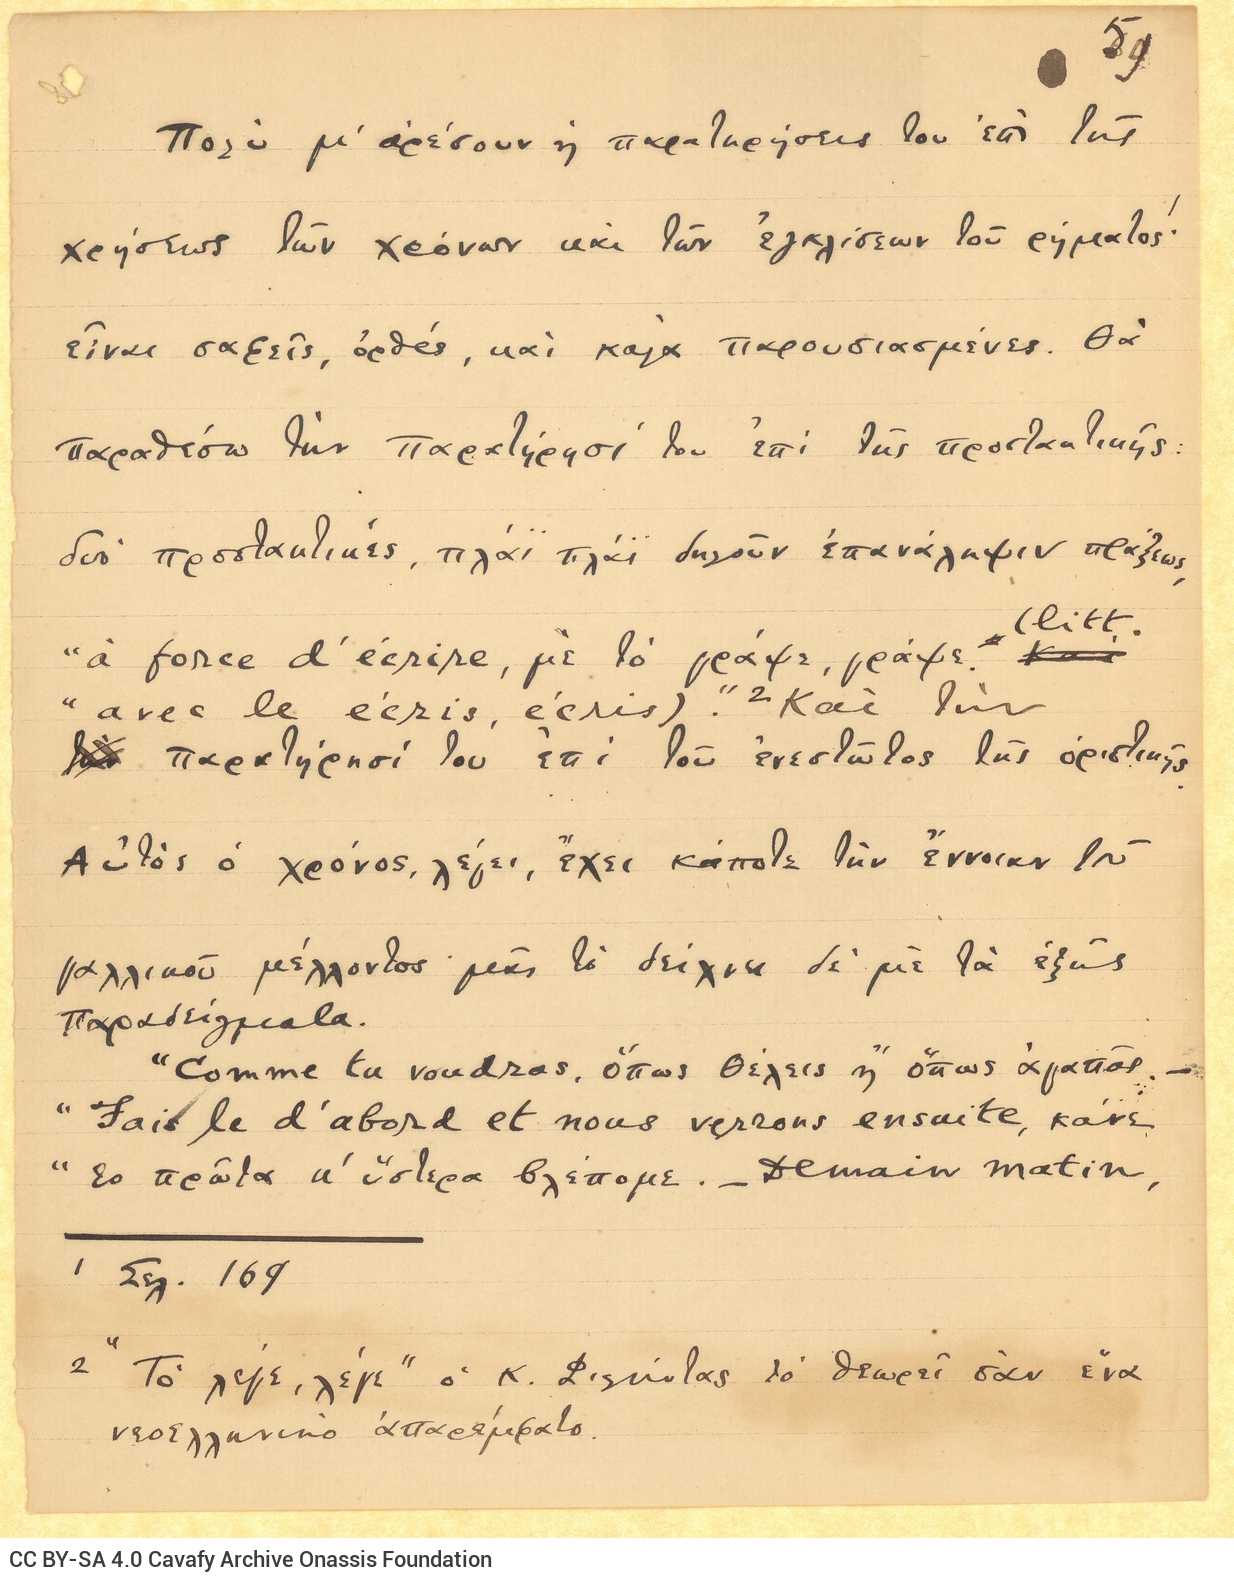 59
Πολύ μ' ἀρέσουν ἡ παρατηρήσεις του ἐπὶ τῆς
χρήσεως τῶν χρόνων καὶ τῶν ἐγκλίσεων τοῦ ρήματος¹·
εἶναι σαφεῖς, ὀρθές, καὶ καλὰ παρουσιασμένες. Θὰ
παραθέσω τὴν παρατήρησί του ἐπὶ τῆς προστακτικῆς:
δυὸ προστακτικές, πλάϊ πλάϊ δηλοῦν ἐπανάληψιν πράξεως,
“à force d'écrire, μὲ τὸ γράψε, γράψε. (litt.
“avec le écris, écris).”² Καὶ τὴν
παρατήρησί του ἐπὶ τοῦ ἐνεστῶτος τῆς ὁριστικῆς.
Αὐτὸς ὁ χρόνος, λέγει, ἔχει κάποτε τὴν ἔννοιαν τοῦ
γαλλικοῦ μέλλοντος· μᾶς τὸ δείχνει δὲ μὲ τὰ ἑξῆς
παραδείγματα.
“Comme tu voudras, ὅπως θέλεις ἢ ὅπως ἀγαπᾶς. —
“Fais le d'abord et nous verrons ensuite, κάνε
“το πρῶτα κ' ὕστερα βλέπομε. — Demain matin,
1 Σελ. 169
2 “Τὸ λέγε, λέγε” ὁ κ. Φιλήντας τὸ θεωρεῖ σὰν ἕνα
νεοελληνικὸ ἀπαρέμφατο.
CC BY-SA 4.0 Cavafy Archive Onassis Foundation